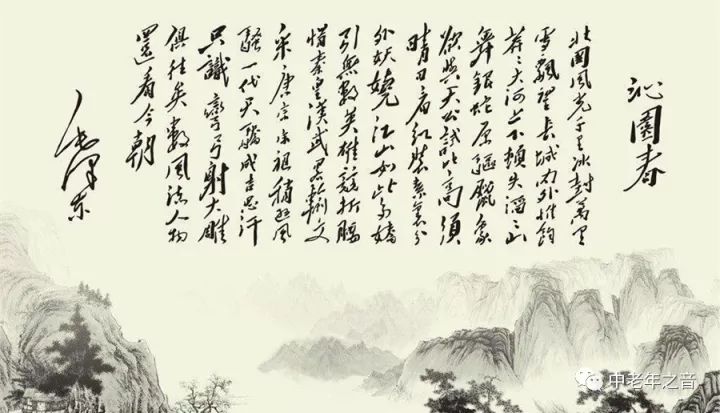 沁園春
北國風光千里冰封萬里
雪飄望長城內外惟餘
莽〻大河上下頓失滔〻山
舞銀蛇原驅臘象
欲與天公試比高須
晴日看紅裝素裹分
外妖嬈江山如此多嬌
引無數英雄競折腰
惜秦皇漢武略輸文
采唐宗宋祖稍遜風
騷一代天驕成吉思汗
只識彎弓射大雕
俱往矣數風流人物
還看今朝
毛澤東
中老年之音